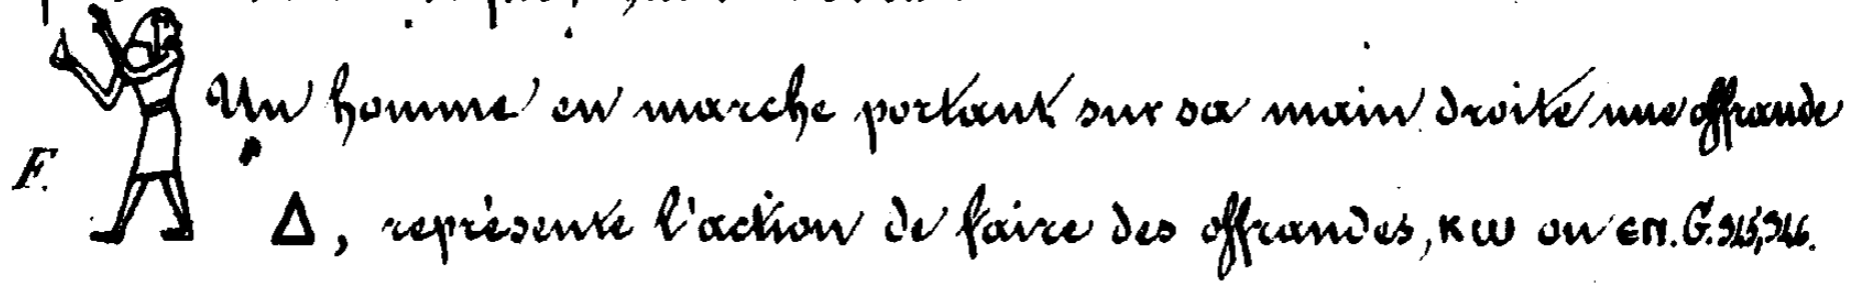 Un homme en marche portant sur sa main droite une offrande
F.
Δ, représente l'action de faire des offrandes, ⲕⲱ ou ⲉⲛ. G. 345, 346.